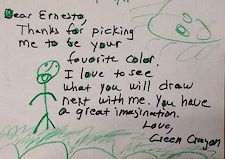 Dear Ernesto,
Thanks for picking
me to be your
favorite color.
I love to see
what you will draw
next with me. You have
a great imagination.
Love,
Green Crayon